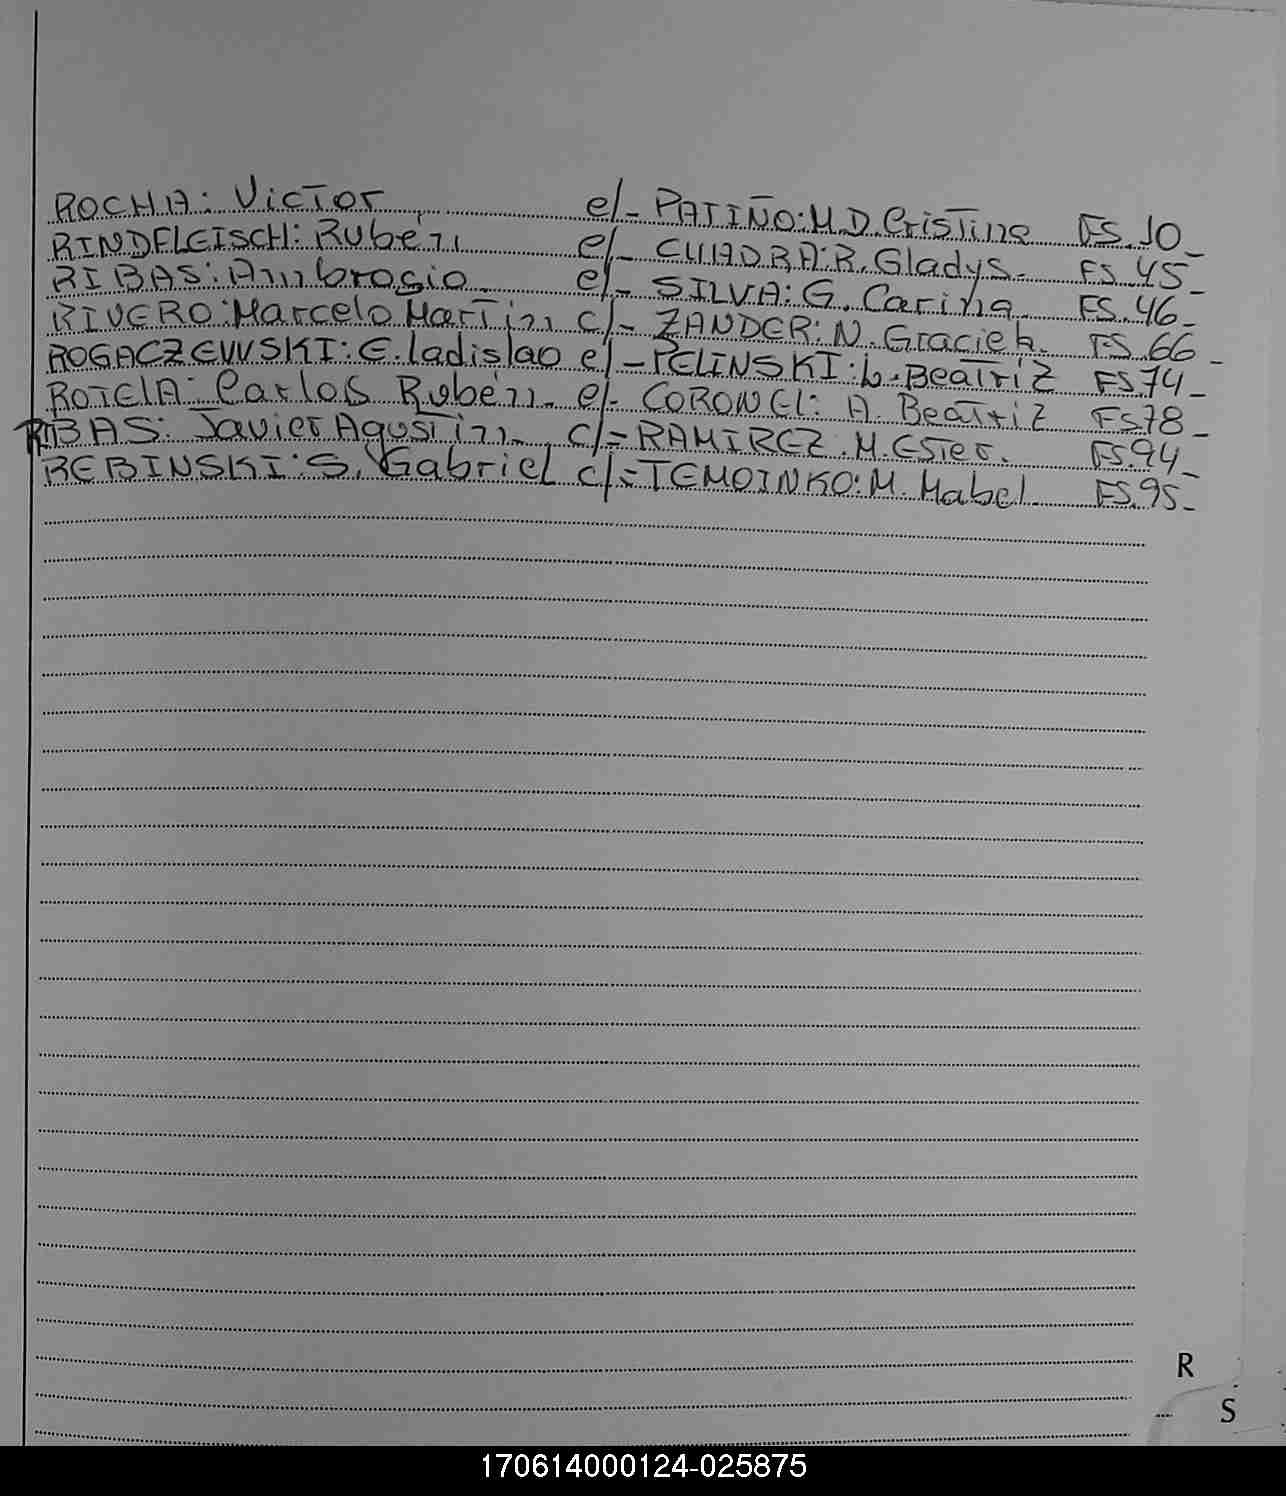 ROCHA: Victor c/- PATIÑO: M.D. Cristina FS. 10-
RINDFLEISCH: Rubén c/- CUADRA: R. Gladys- FS. 45-
RIBAS: Ambrosio c/- SILVA: G. Carina FS. 46-
RIVERO: Marcelo Martín c/- ZANDER: N. Graciela. FS. 66-
ROGACZEWSKI: E. ladislao c/- PELINSKI: L. Beatriz FS. 74-
ROTELA: Carlos Rubén- c/- CORONEL: A. Beatriz FS 78-
RIBAS: Javier Agustín- c/- RAMIREZ. M. Ester. FS. 94-
REBINSKI: S. Gabriel c/- TEMOINKO: M. Mabel FS. 95-
R
S
170614000124-025875